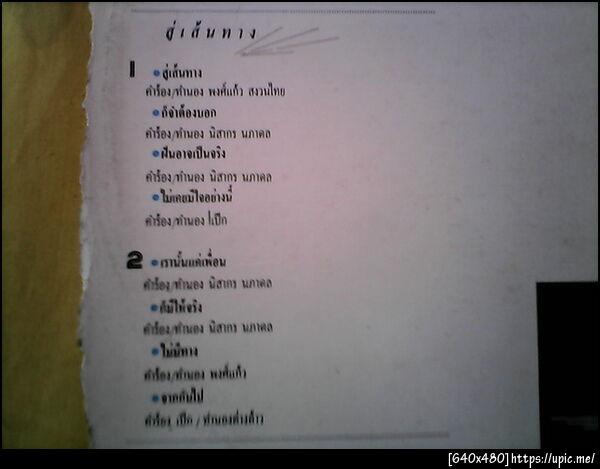 สู่เส้นทาง
1 สู่เส้นทาง
คำร้อง/ทำนอง พงศ์แก้ว สงวนไทย
ก็จำต้องบอก
คำร้อง/ทำนอง นิสากร นภาดล
ฝันอาจเป็นจริง
คำร้อง/ทำนอง นิสากร นภาดล
ไม่เคยมีใจอย่างนี้
คำร้อง/ทำนอง เป๊ก
2 เรานั้นแค่เพื่อน
คำร้อง/ทำนอง นิสากร นภาดล
ก็มีให้จริง
คำร้อง/ทำนอง นิสากร นภาดล
ไม่มีทาง
คำร้อง/ทำนอง พงศ์แก้ว
จากกันไป
คำร้อง เป๊ก / ทำนองต่างด้าว
[640x480]https://upic.me/